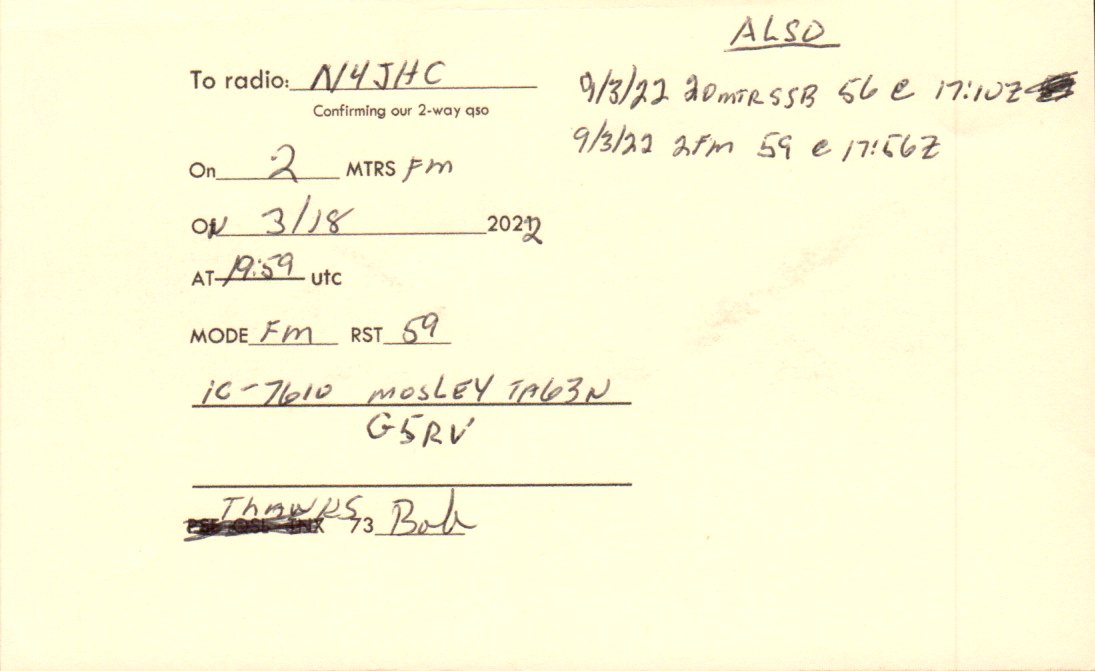 ALSO
To radio: N4JHC
Confirming our 2-way qso
9/3/22 20mTR SSB 56 @ 17:10Z
9/3/22 2Fm 59 @ 17:56Z
On 2 MTRS Fm
ON 3/18 2022
AT 19:59 utc
MODE Fm RST 59
iC-7610 MOSLEY TA63N
G5RV
Thanks
PSE QSL TNX 73 Bob